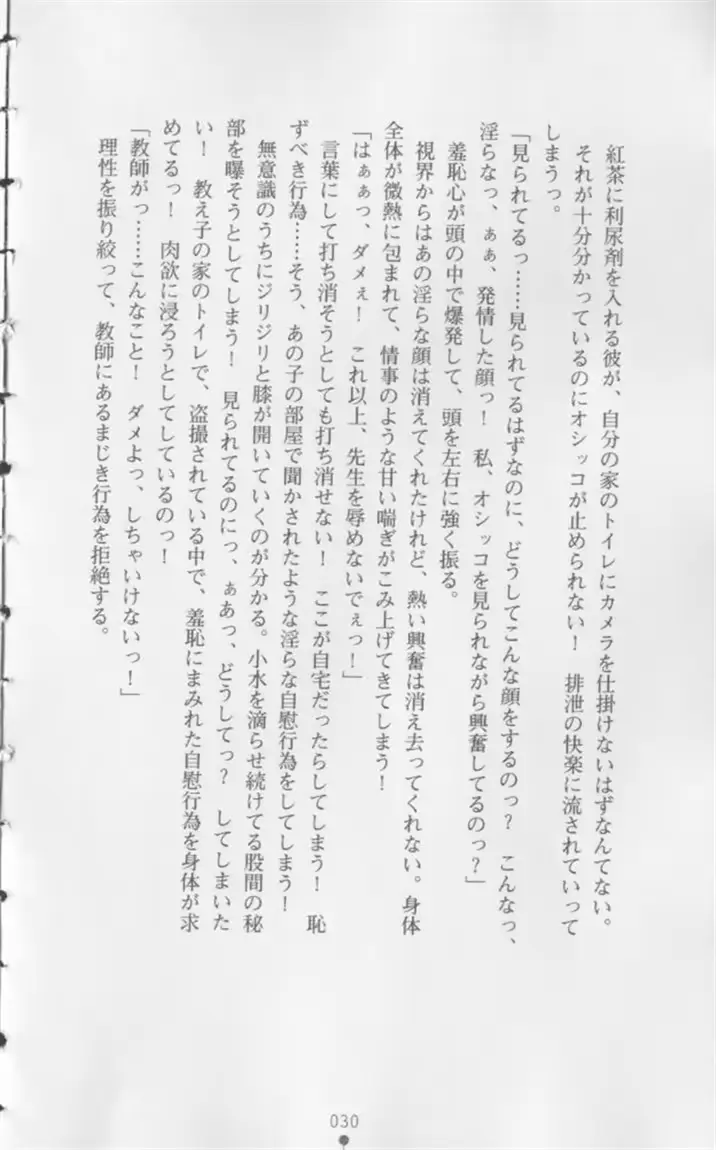 紅茶に利尿剤を入れる彼が、自分の家のトイレにカメラを仕掛けないはずなんてない。
それが十分分かっているのにオシッコが止められない！　排泄の快楽に流されていって
しまうっ。
「見られてるっ……見られてるはずなのに、どうしてこんな顔をするのっ？　こんなっ、
淫らなっ、ぁぁ、発情した顔っ！　私、オシッコを見られながら興奮してるのっ？」
羞恥心が頭の中で爆発して、頭を左右に強く振る。
視界からはあの淫らな顔は消えてくれたけれど、熱い興奮は消え去ってくれない。身体
全体が微熱に包まれて、情事のような甘い喘ぎがこみ上げてきてしまう！
「はぁぁっ、ダメぇ！　これ以上、先生を辱めないでぇっ！」
言葉にして打ち消そうとしても打ち消せない！　ここが自宅だったらしてしまう！　恥
ずべき行為……そう、あの子の部屋で聞かされたような淫らな自慰行為をしてしまう！
無意識のうちにジリジリと膝が開いていくのが分かる。小水を滴らせ続けてる股間の秘
部を曝そうとしてしまう！　見られてるのにっ、ぁあっ、どうしてっ？　してしまいた
い！　教え子の家のトイレで、盗撮されている中で、羞恥にまみれた自慰行為を身体が求
めてるっ！　肉欲に浸ろうとしてしているのっ！
「教師がっ……こんなこと！　ダメよっ、しちゃいけないっ！」
理性を振り絞って、教師にあるまじき行為を拒絶する。
030